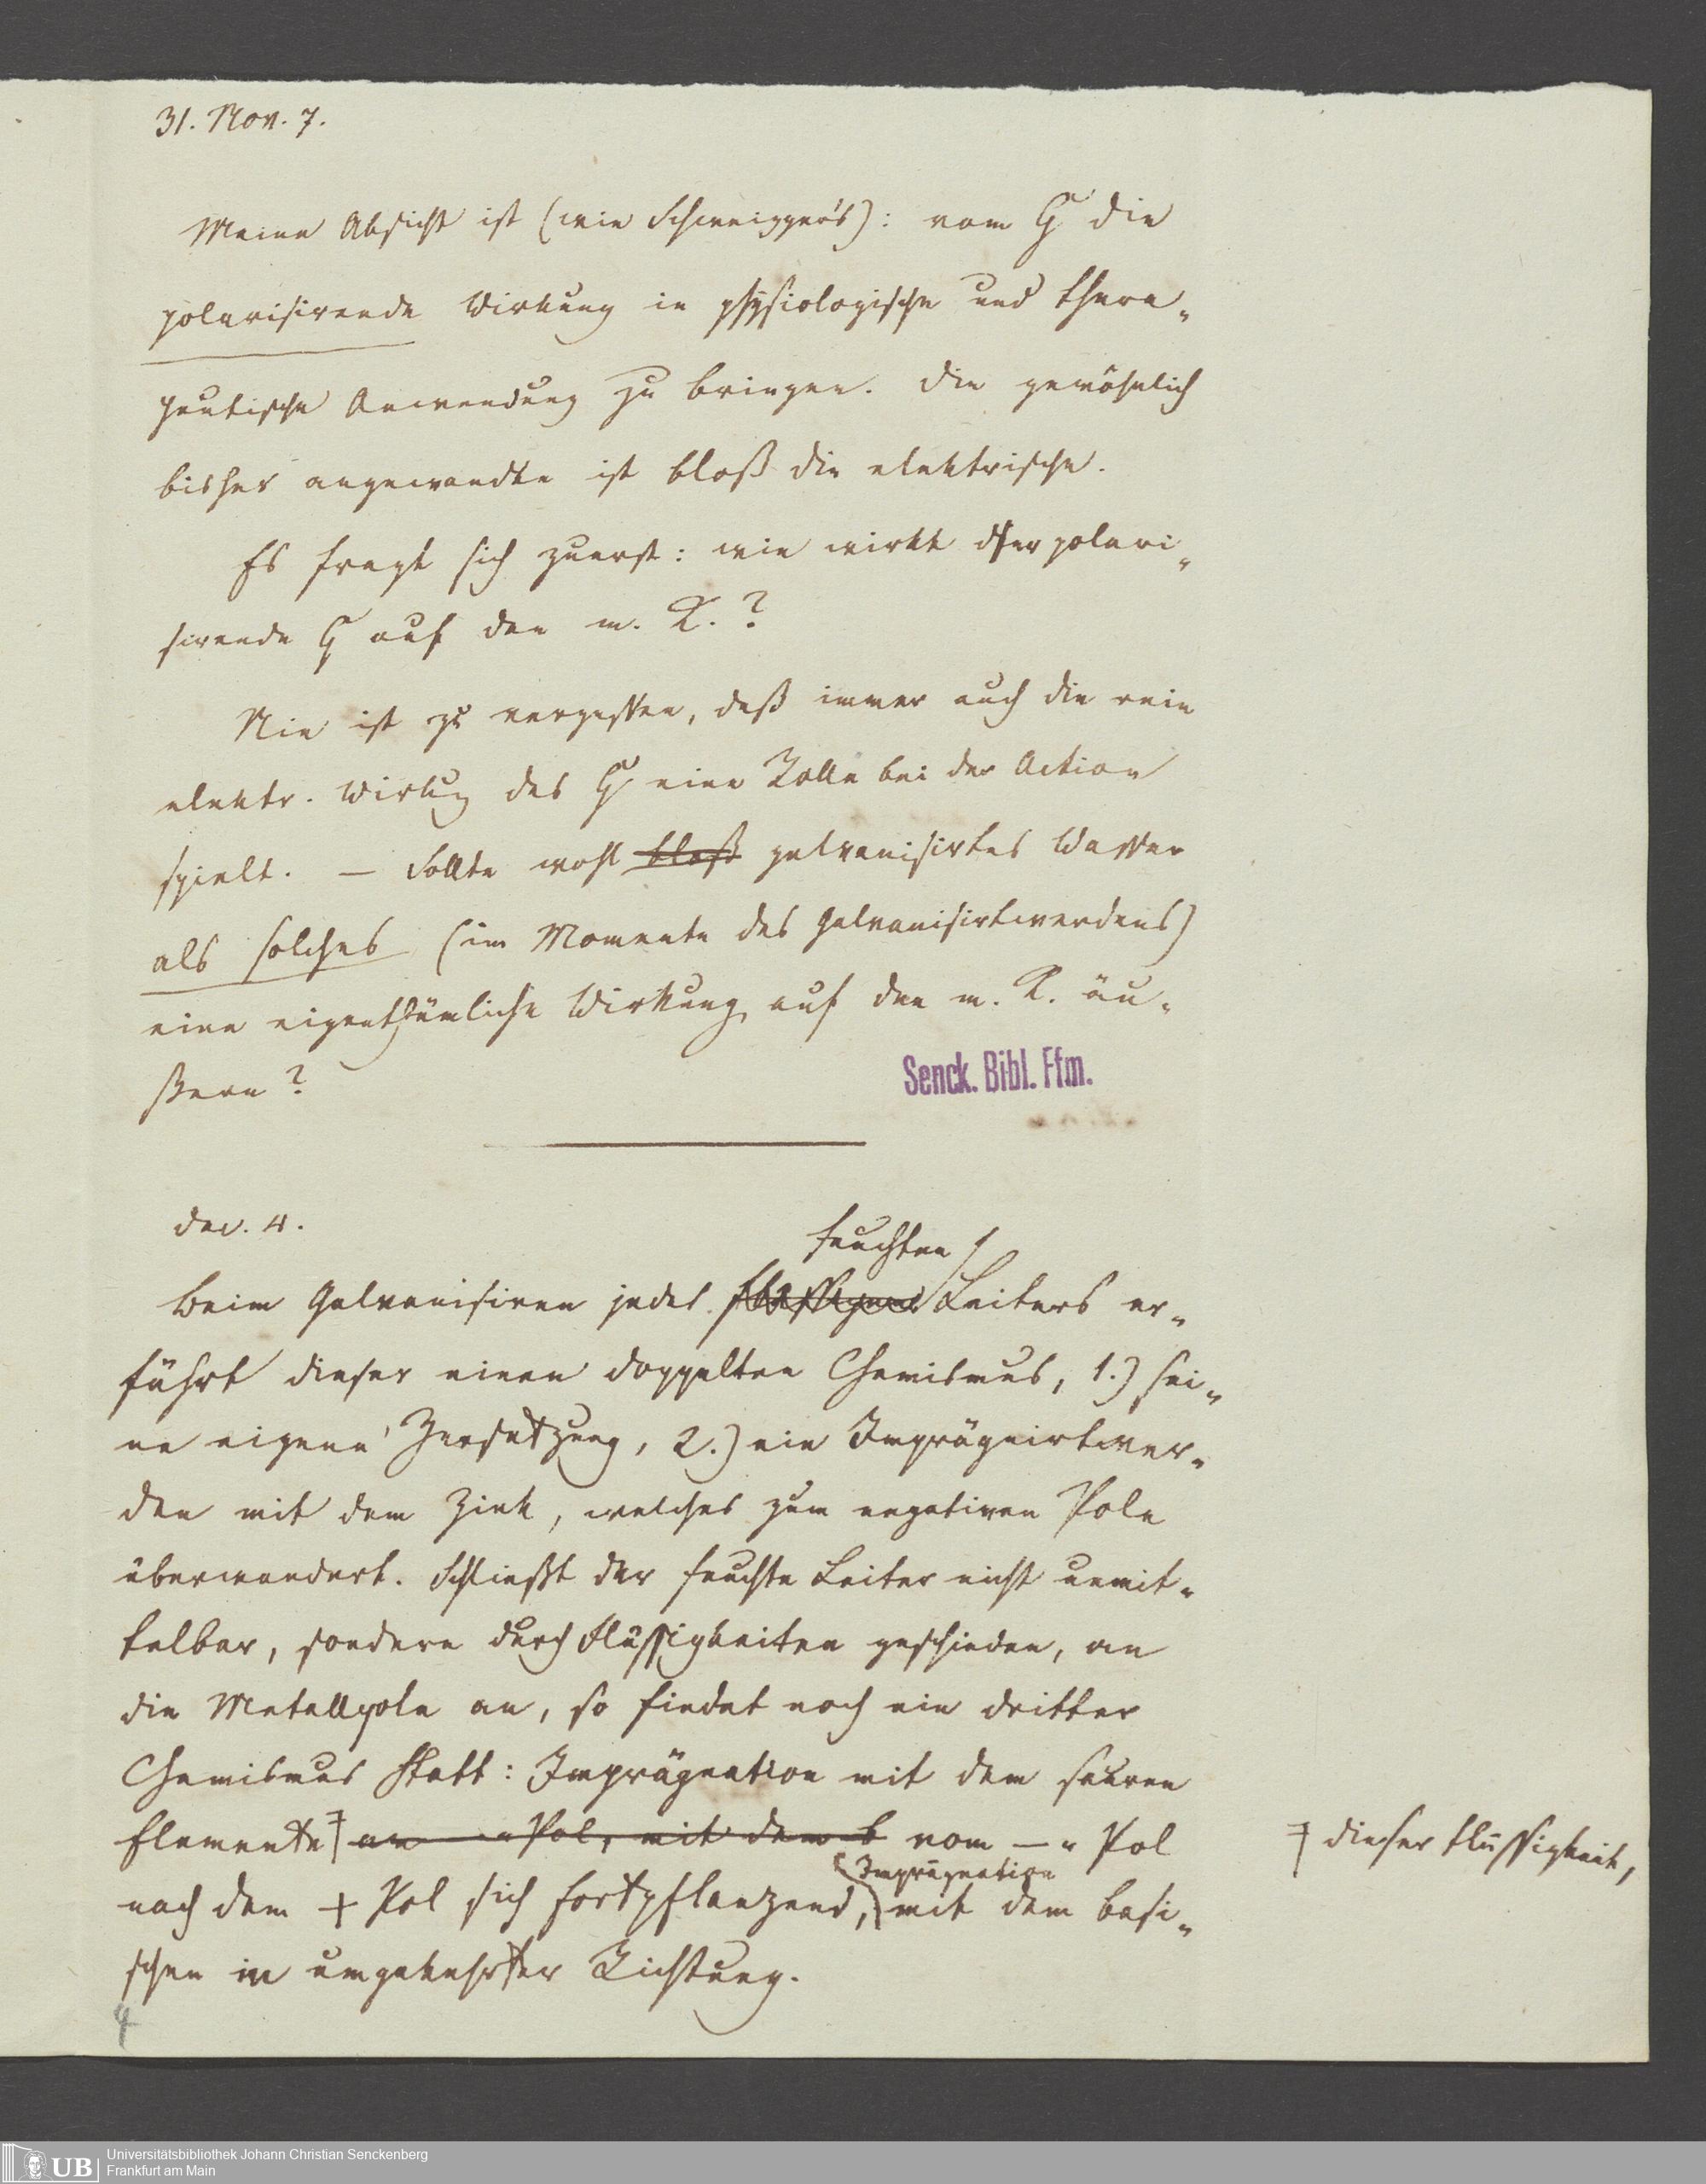 31. Nov. 7.
Meine Absicht ist (wie Schweigger's): vom G die
polarisirende Wirkung in physiologische und thera-
peutische Anwendung zu bringen. Die gewöhnlich
bisher angewandte ist bloß die elektrische.
Es fragt sich zuerst: wie wirkt der polari-
sirende G auf den m. K.?
Nie ist zu vergessen, daß immer auch die rein
elektr. Wirkung des G eine Rolle bei der Action
spielt. — Sollte wohl bloß galvanisirtes Wasser
als solches (im Momente des Galvanisirtwerdens)
eine eigenthümliche Wirkung auf den m. K. äu-
ßern?
Senck. Bibl. Ffm.
Dec. 4.
feuchten
Beim Galvanisiren jedes flüssigen Leiters er-
fährt dieser einen doppelten Chemismus, 1.) sei-
ne eigene Zersetzung, 2.) ein Imprägnirtwer-
den mit dem Zink, welches zum negativen Pole
überwandert. Schließt der feuchte Leiter nicht unmit-
telbar, sondern durch Flüssigkeiten geschieden, an
die Metallpole an, so findet noch ein dritter
Chemismus Statt: Imprägnation mit dem sauren
Elemente an Pol, mit dem b vom — Pol
dieser Flüssigkeit,
Imprägnation
nach dem + Pol sich fortpflanzend, mit dem basi-
schen in umgekehrter Richtung.
4
UB
Universitätsbibliothek Johann Christian Senckenberg
Frankfurt am Main